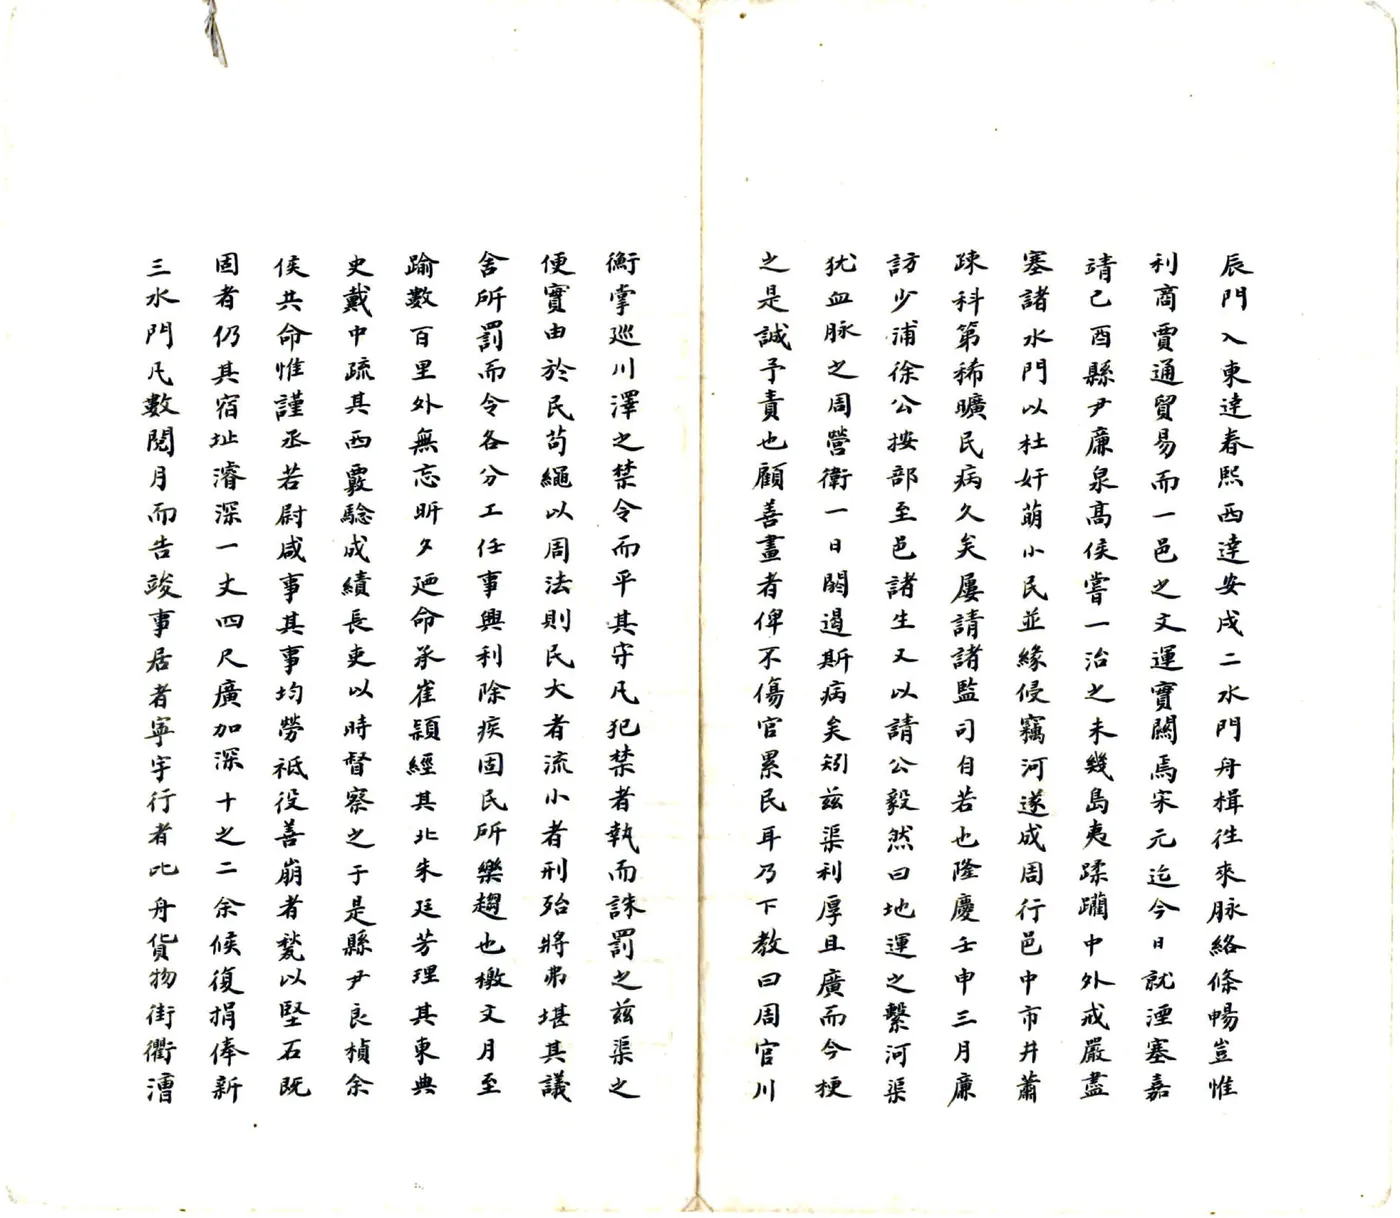 辰門入東達春熙西達安戌二水門舟楫徃來脉絡條暢豈惟
利商賈通貿易而一邑之文運實闗焉宋元迄今日就湮塞嘉
靖己酉縣尹廉泉髙侯嘗一治之未幾島夷蹂躪中外戒嚴盡
塞諸水門以杜奸萌小民並緣侵竊河遂成周行邑中市井蕭
踈科第稀曠民病久矣屢請諸監司自若也隆慶壬申三月廉
訪少浦徐公按部至邑諸生又以請公毅然曰地運之繫河渠
犹血脉之周營衛一日閼遏斯病矣矧兹渠利厚且廣而今梗
之是誠予責也顧善畫者俾不傷官累民耳乃下教曰周官川
衡掌巡川澤之禁令而平其守凡犯禁者執而誅罰之兹渠之
便實由於民苟繩以周法則民大者流小者刑殆將弗堪其議
舍所罰而令各分工任事興利除疾固民所樂趨也檄文月至
踰數百里外無忘昕夕廼命丞崔顥經其北朱廷芳理其東典
史戴中疏其西覈驗成績長吏以時督察之于是縣尹良楨余
侯共命惟謹丞若尉咸事其事均勞祗役善崩者甃以堅石既
固者仍其宿址濬深一丈四尺廣加深十之二余候復捐俸新
三水門凡數閱月而告竣事居者寧宇行者比舟貨物街衢漕